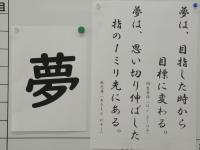 夢は、目指した時から
目標に変わる。
夢は、思い切り伸ばした
指の1ミリ先にある。
夢